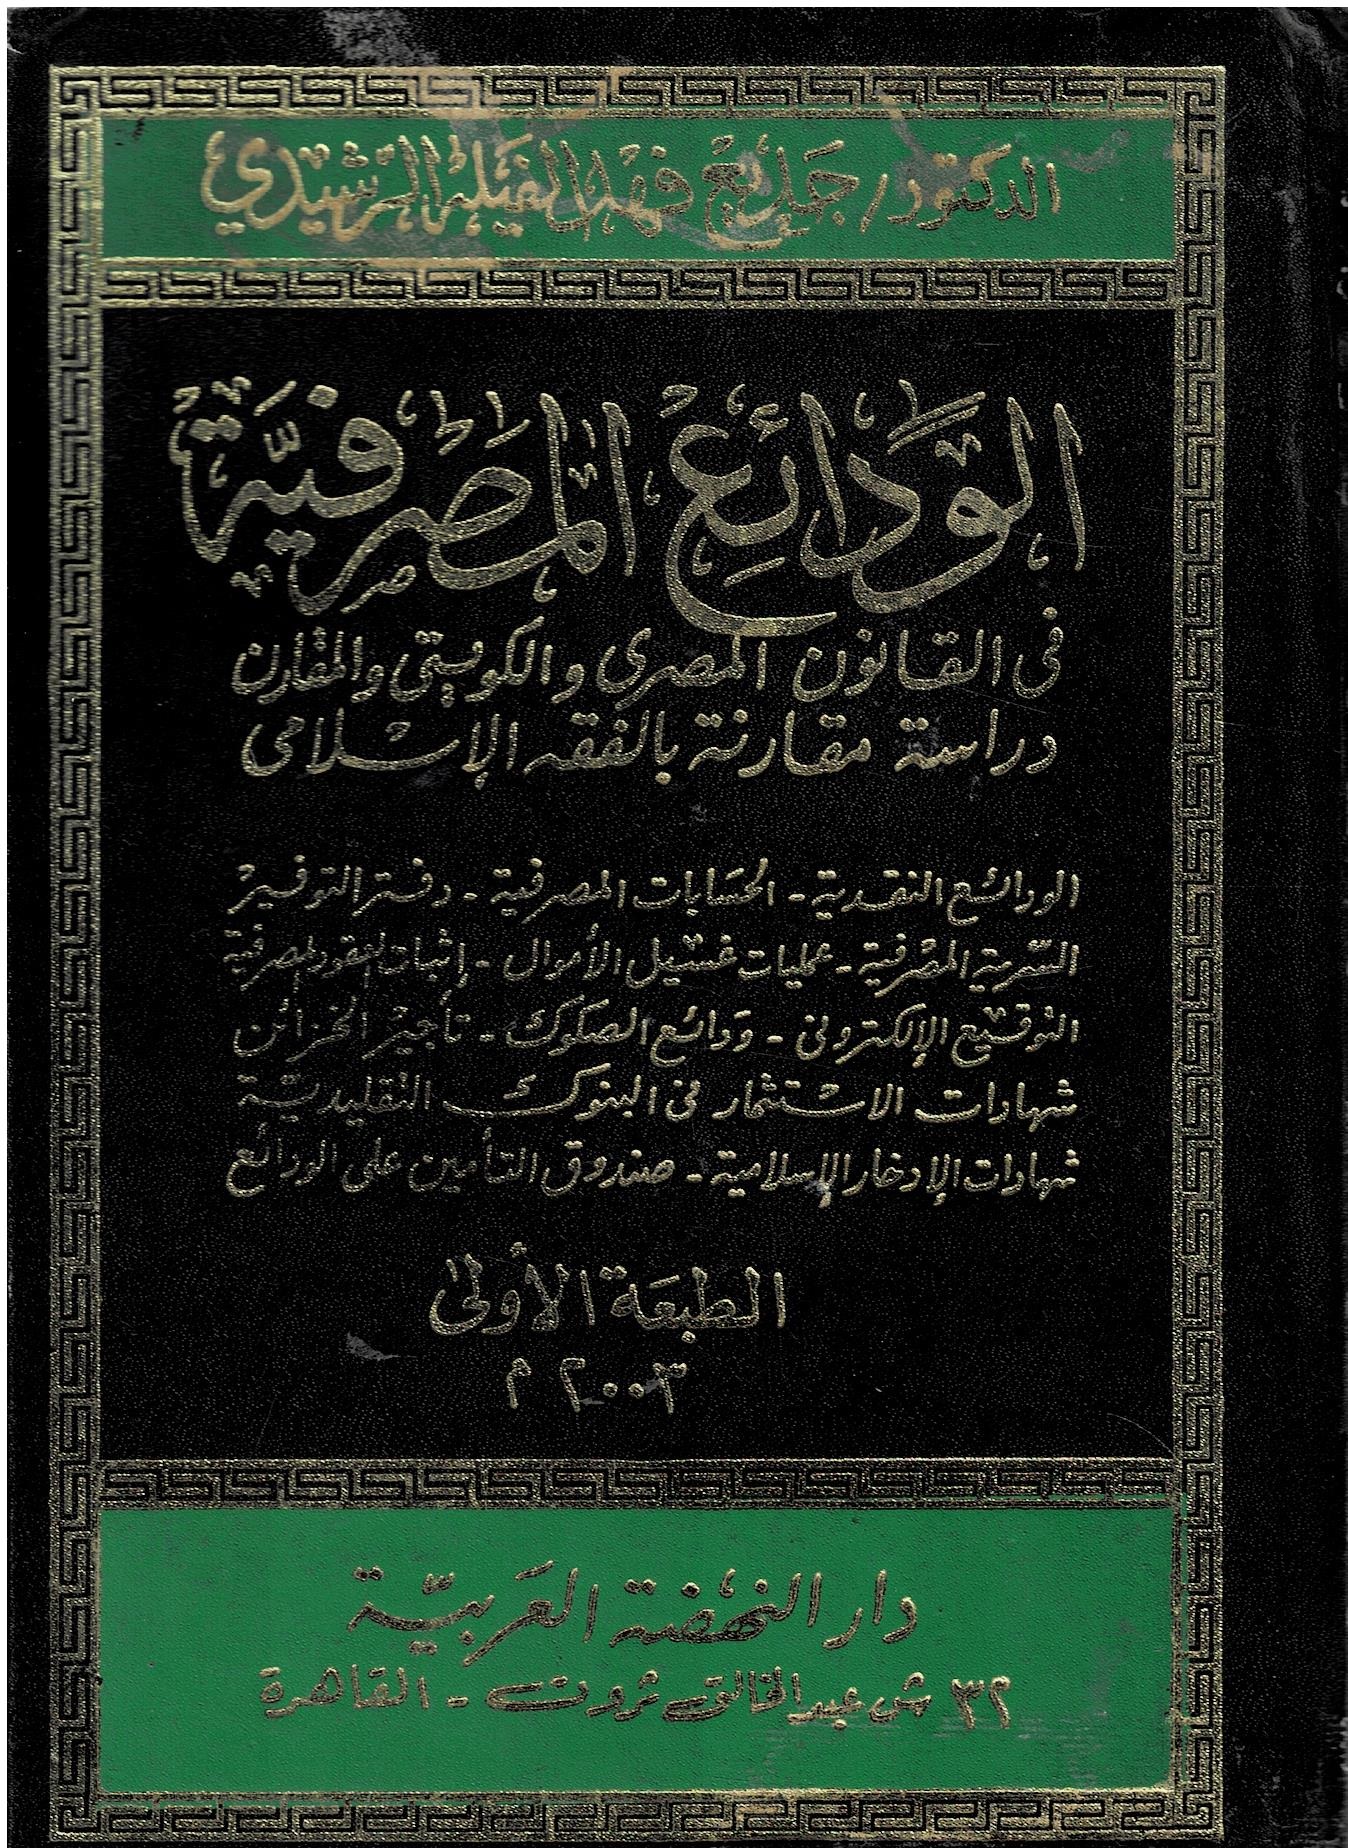 الدكتور/ جديع فهد الفيلة الرشيدي
الودائع المصرفية
فى القانون المصرى والكويتى والمقارن
دراسة مقارنة بالفقه الإسلامى
الودائع النقدية - الحسابات المصرفية - دفتر التوفير
السرية المصرفية - عمليات غسيل الأموال - إثبات العقود المصرفية
التوقيع الإلكترونى - ودائع الصكوك - تأجير الخزائن
شهادات الاستثمار فى البنوك التقليدية
شهادات الإدخار الإسلامية - صندوق التأمين على الودائع
الطبعة الأولى
٢٠٠٣ م
دار النهضة العربية
٣٢ ش عبد الخالق ثروت - القاهرة